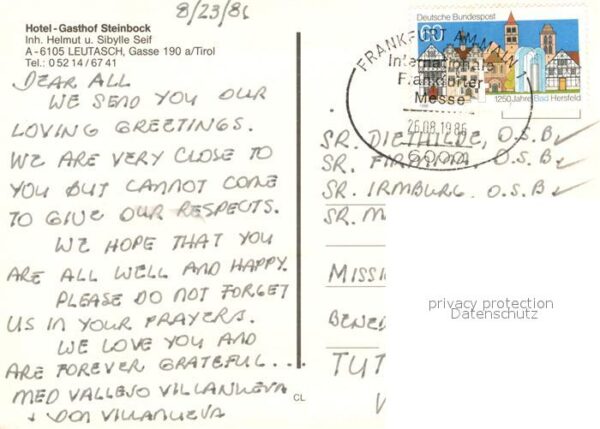 8/23/86
Hotel-Gasthof Steinbock
Inh. Helmut u. Sibylle Seif
A-6105 LEUTASCH, Gasse 190 a/Tirol
Tel.: 0 52 14 / 67 41
DEAR ALL
WE SEND YOU OUR
LOVING GREETINGS.
WE ARE VERY CLOSE TO
YOU BUT CANNOT COME
TO GIVE OUR RESPECTS.
WE HOPE THAT YOU
ARE ALL WELL AND HAPPY.
PLEASE DO NOT FORGET
US IN YOUR PRAYERS.
WE LOVE YOU AND
ARE FOREVER GRATEFUL...
MED VALLEJO VILLANUEVA
+ DON VILLANUEVA
CL
Deutsche Bundespost
60
1250 Jahre Bad Hersfeld
FRANKFURT AM MAIN 1
Internationale
Frankfurter
Messe
26.08.1986
6000
SR. DIETHILDE, O.S.B
SR. O.S.B
SR. IRMBURG. O.S.B
SR. M
MISSI
BENE
TUT
privacy protection
Datenschutz